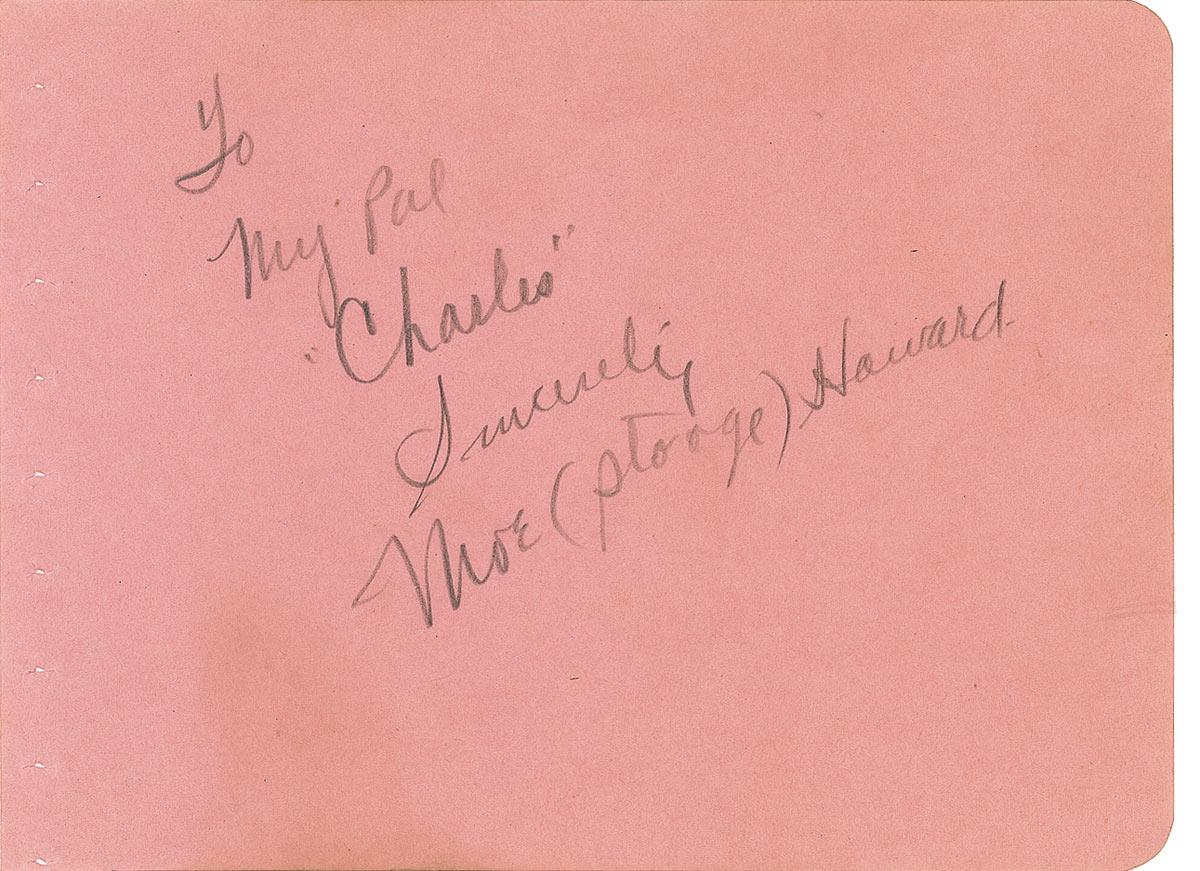 To
My Pal
"Charles"
Sincerely
Moe (Stooge) Howard